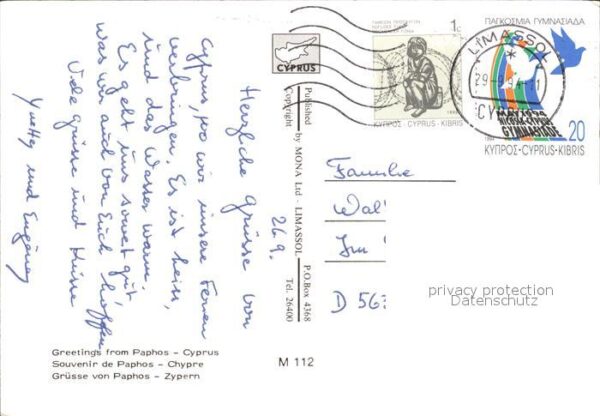 26.9.
Herzliche Grüsse von
Cyprus, wo wir unsere Ferien
verbringen. Es ist heiss,
und das Wasser warm.
Es geht uns soweit gut,
was wir auch von Euch hoffen
Viele grüsse und Küsse
und
CYPRUS
Published
Copyright by MONA Ltd - LIMASSOL
P.O.Box 4368
Tel. 26400
1c
ΚΥΠΡΟΣ-CYPRUS-KIBRIS
ΠΑΓΚΟΣΜΙΑ ΓΥΜΝΑΣΙΑΔΑ
LIMASSOL
29-9-94-11
MAY 1994
NICOSIA-CYPRUS
GYMNASIADE
20
ΚΥΠΡΟΣ-CYPRUS-KIBRIS
Familie
Wal
Im
D 563
privacy protection
Datenschutz
Greetings from Paphos - Cyprus
Souvenir de Paphos - Chypre
Grüsse von Paphos - Zypern
M 112